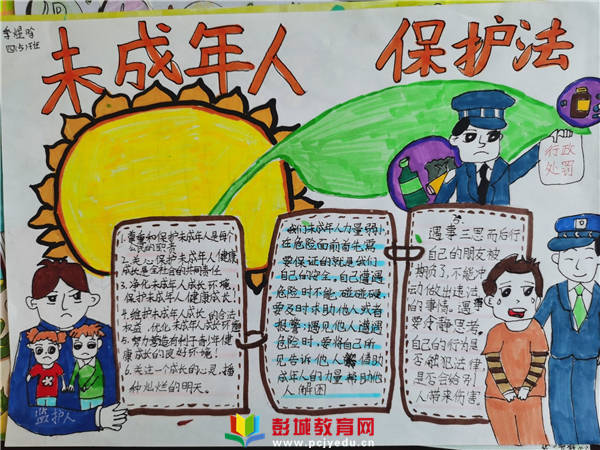 李煜晗
四(5)班
未成年人 保护法
行政
处罚
1.尊重和保护未成年人是每个
公民的职责
2.关心保护未成年人健康
成长是全社会的共同责任
3.净化未成年人成长环境,
保护未成年人健康成长!
4.维护未成年人成长的合法
权益,优化未成年人成长环境
5.努力营造有利于青少年健
康成长的良好环境!
6.关注一个成长的心灵,播
种灿烂的明天。
我们未成年人力量弱小
在危险面前首先需
要保证的就是我们
自己的安全,自己遭遇
危险时不能硬碰硬,
要及时求助他人或者
报警;遇见他人遭遇
危险时,要将自己所
见告诉他人,借助
成年人的力量帮助他
人解困
遇事三思而后行
自己的朋友被
欺负了,不能冲
动做出违法
的事情。遇事
要冷静思考,
自己的行为是
否触犯法律,
是否会给别
人带来伤害
监护人
彭城教育网
www.pcjyedu.cn